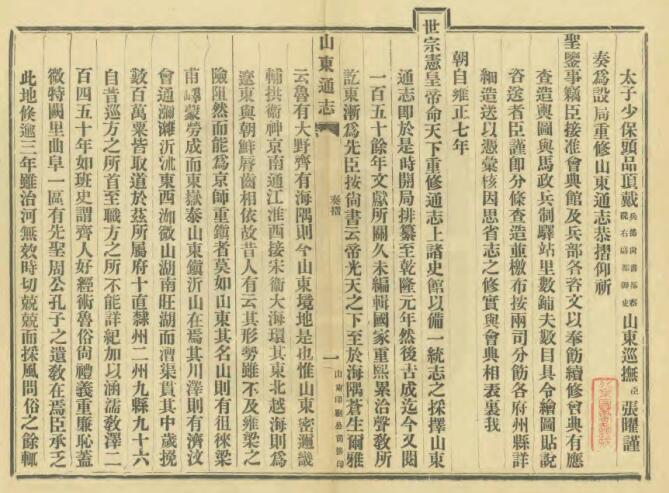 太子少保頭品頂戴兵部尚書都察院右副都御史山東巡撫臣張曜謹
奏爲設局重修山東通志恭摺仰祈
聖鑒事竊臣接准會典館及兵部各咨文以奉飭續修會典有應
查造輿圖與馬政兵制驛站里數鋪夫數目具令繪圖貼說
咨送者臣謹卽分條查造並檄布按兩司分飭各府州縣詳
細造送以憑彙核因思省志之修實與會典相表裏我
朝自雍正七年
世宗憲皇帝命天下重修通志上諸史館以備一統志之採擇山東
通志卽於是時開局排纂至乾隆元年然後吿成迄今又閱
一百五十餘年文獻所關久未編輯國家重熙累洽聲敎所
訖東漸爲先臣按尙書云帝光天之下至於海隅蒼生爾雅
山東通志
奏摺
一
山東印刷公司排印
云魯有大野齊有海隅則今山東境地是也惟山東密邇畿
輔拱衛神京南通江淮西接宋衞大海環其東北越海則爲
遼東與朝鮮脣齒相依故昔人有云其形勢雖不及雍梁之
險阻然而能爲京師重鎭者莫如山東其名山則有徂徠梁
甫嶧蒙勞成而東嶽泰山東鎭沂山在焉其川澤則有濟汶
會通瀰濰沂沭東西泇微山湖南旺湖而漕渠貫其中歲挽
數百萬粟皆取道於茲所屬府十直隸州二州九縣九十六
自昔巡方之所首至職方之所不能詳紀加以涵濡敎澤二
百四五十年如班史謂齊人好經術魯俗尙禮義重廉恥蓋
微特闕里曲阜一區有先聖周公孔子之遺敎在焉臣承乏
此地倐逾三年雖治河無效時切兢兢而採風問俗之餘輒